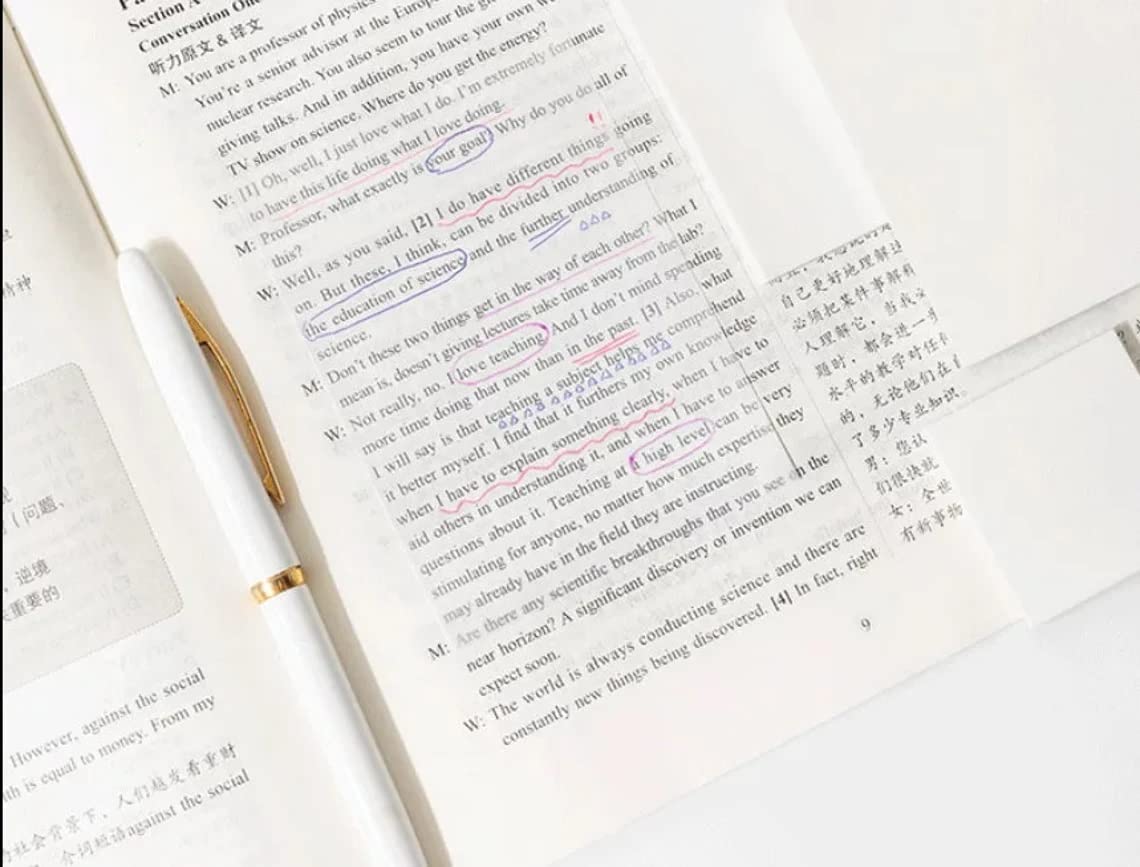 Section A
Conversation One
听力原文 & 译文
M: You are a professor of physics
You're a senior advisor at the
nuclear research. You also seem to tour the
giving talks. And in addition, you have your own
TV show on science. Where do you get the energy?
W: [1] Oh, well, I just love what I do. I'm extremely fortunate
to have this life doing what I love doing.
M: Professor, what exactly is your goal? Why do you do all of
this?
W: Well, as you said, [2] I do have different things going
on. But these, I think, can be divided into two groups:
the education of science and the further understanding of
science.
M: Don't these two things get in the way of each other? What I
mean is, doesn't giving lectures take time away from the lab?
W: Not really, no. I love teaching. And I don't mind spending
more time doing that now than in the past. [3] Also, what
I will say is that teaching a subject helps me comprehend
it better myself. I find that it furthers my own knowledge
when I have to explain something clearly, when I have to
aid others in understanding it, and when I have to answer
questions about it. Teaching at a high level can be very
stimulating for anyone, no matter how much expertise they
may already have in the field they are instructing.
M: Are there any scientific breakthroughs that you see on the
near horizon? A significant discovery or invention we can
expect soon.
W: The world is always conducting science and there are
constantly new things being discovered. [4] In fact, right
9
自己更好地理解
必须把某件事解释
人理解它，当我必
题时，都会进一步
水平的教学对任何
的，无论他们在
了多少专业知识。
男：您认
们很快就
女：全世
有新事物
精神
(问题、
逆境
重要的
However, against the social
is equal to money. From my
社会背景下，人们越发看重财
介词短语against the social